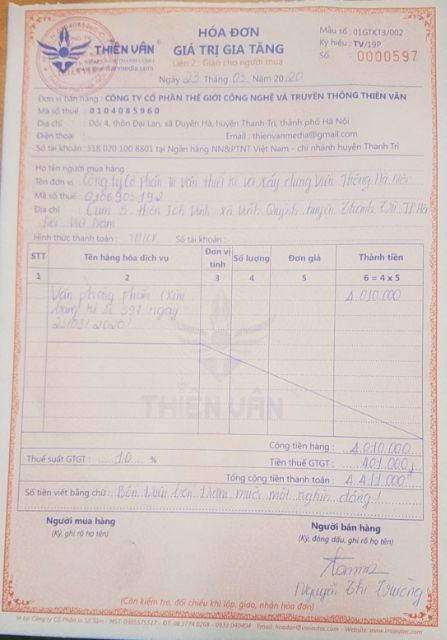 THIÊN VÂN
www.thienvanmedia.com
HÓA ĐƠN
GIÁ TRỊ GIA TĂNG
Liên 2: Giao cho người mua
Ngày 23 Tháng 03 Năm 2020
Mẫu số : 01GTKT3/002
Ký hiệu : TV/19P
Số 0000597
Đơn vị bán hàng : CÔNG TY CỔ PHẦN THẾ GIỚI CÔNG NGHỆ VÀ TRUYỀN THÔNG THIÊN VÂN
Mã số thuế : 0104085960
Địa chỉ : Đội 4, thôn Đại Lan, xã Duyên Hà, huyện Thanh Trì, thành phố Hà Nội
Điện thoại : Email : thienvanmedia@gmail.com
Số tài khoản : 318 020 100 8801 tại Ngân hàng NN&PTNT Việt Nam - chi nhánh huyện Thanh Trì
Họ tên người mua hàng :
Tên đơn vị : Công ty Cổ phần tư vấn thiết kế và xây dựng Viễn Thông Hà Nội
Mã số thuế :
Địa chỉ : Cụm 5, thôn Ích Vịnh, xã Vĩnh Quỳnh, huyện Thanh Trì, TP. Hà
Nội, Việt Nam
Hình thức thanh toán : TM/CK Số tài khoản :
STT Tên hàng hóa dịch vụ Đơn vị tính Số lượng Đơn giá Thành tiền
1 2 3 4 5 6 = 4 x 5
Văn phòng phẩm (Kèm 4.010.000
bảng kê số 597 ngày
23/03/2020)
THIÊN VÂN
Cộng tiền hàng : 4.010.000
Thuế suất GTGT : 10 % Tiền thuế GTGT : 401.000
Tổng cộng tiền thanh toán : 4.411.000
Số tiền viết bằng chữ : Bốn triệu bốn trăm mười một nghìn đồng !
Người mua hàng
(Ký, ghi rõ họ tên)
Người bán hàng
(Ký, đóng dấu, ghi rõ họ tên)
Nguyễn Thị Trường
(Cần kiểm tra, đối chiếu khi lập, giao, nhận hóa đơn)